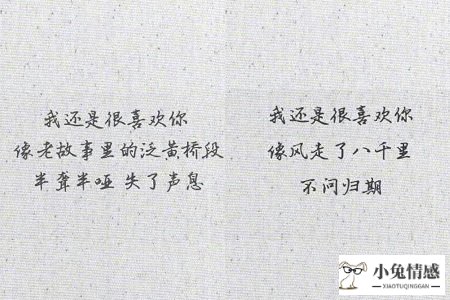 我还是很喜欢你
像老故事里的泛黄桥段
半聋半哑 失了声息
我还是很喜欢你
像风走了八千里
不问归期
小兔情感
XIAOTUQINGGAN